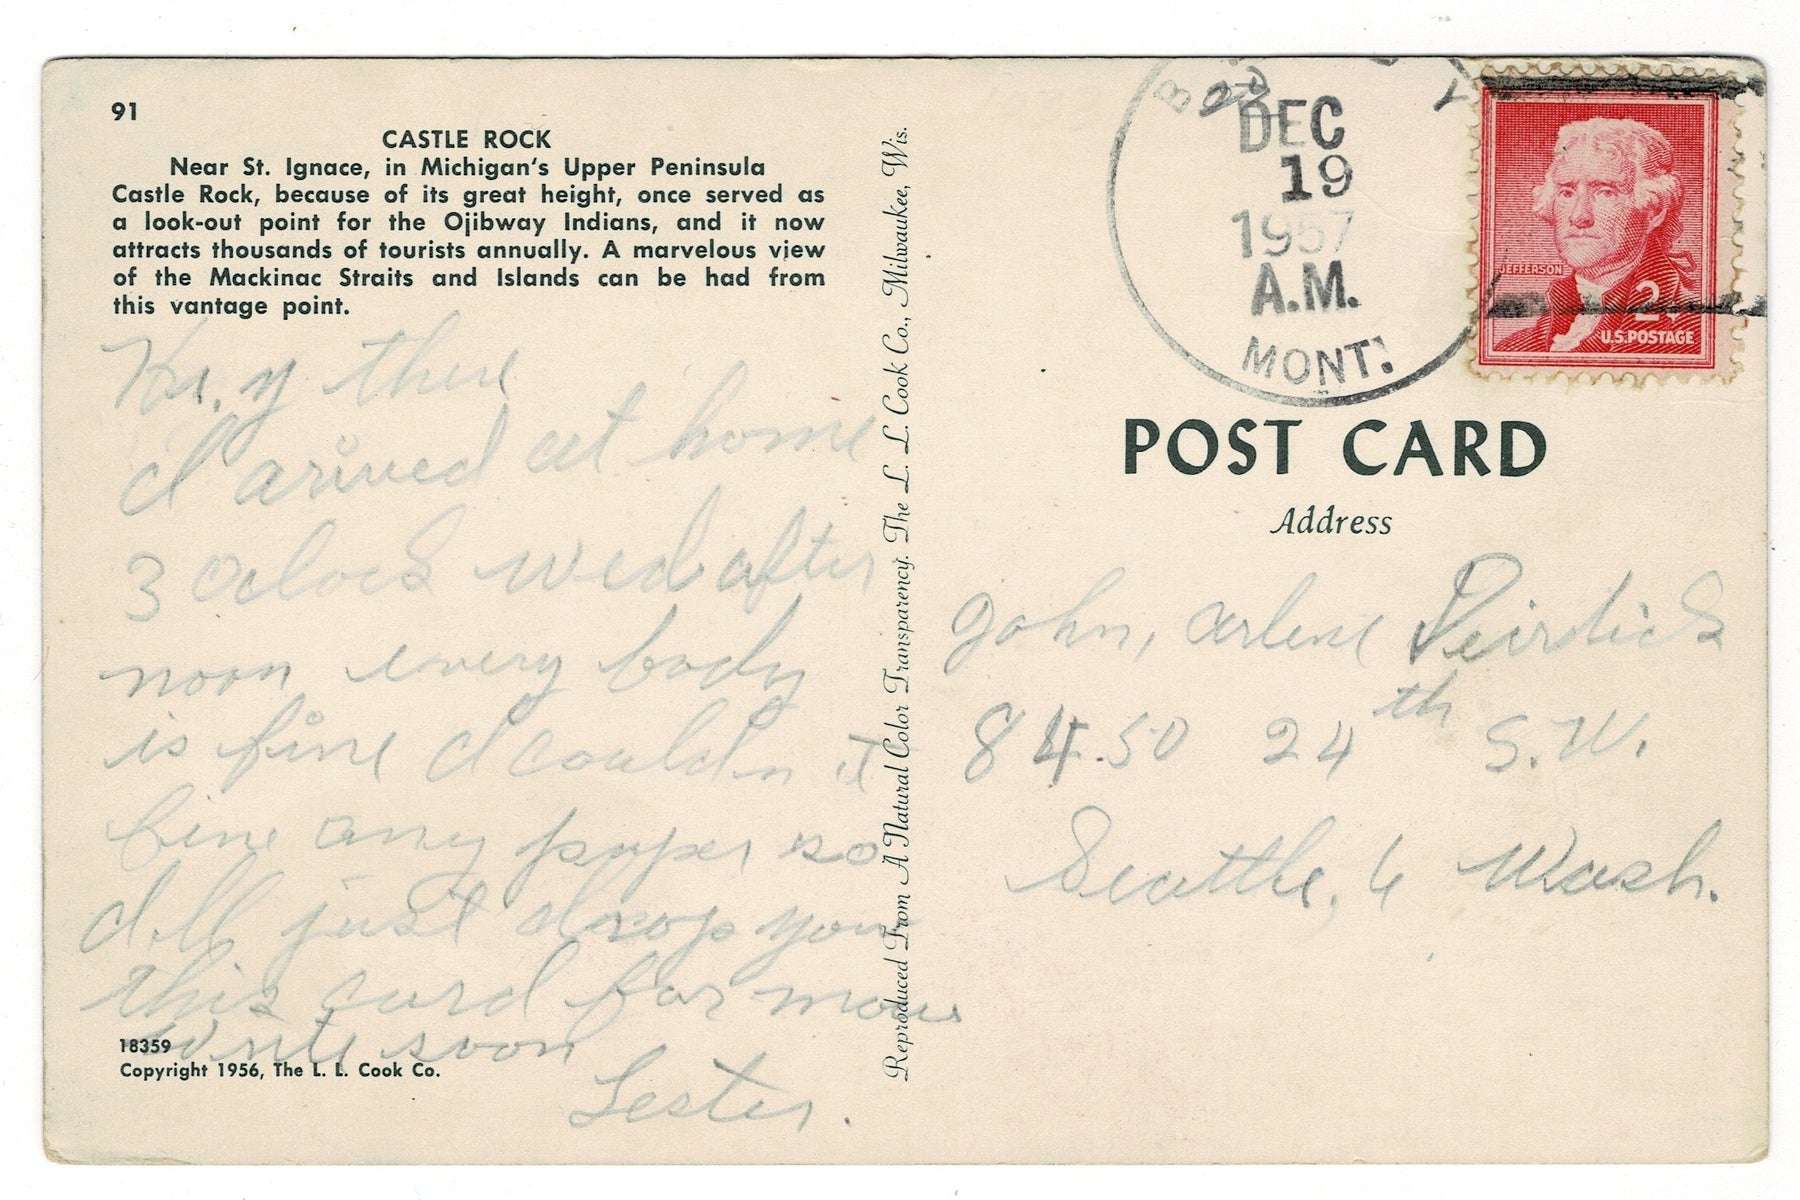 91
CASTLE ROCK
Near St. Ignace, in Michigan's Upper Peninsula
Castle Rock, because of its great height, once served as
a look-out point for the Ojibway Indians, and it now
attracts thousands of tourists annually. A marvelous view
of the Mackinac Straits and Islands can be had from
this vantage point.
there
I arived at home
3 oclock wed after
noon every body
is fine I couldn't
fine any paper so
I'll just drop you
this card for now
write soon
Lester.
18359
Copyright 1956, The L. L. Cook Co.
Reproduced From A Natural Color Transparency. The L. L. Cook Co., Milwaukee, Wis.
DEC
19
1957
A.M.
MONT.
JEFFERSON
2¢
U.S. POSTAGE
POST CARD
Address
John, Arlene
8450 24th S.W.
Seattle, 6 Wash.